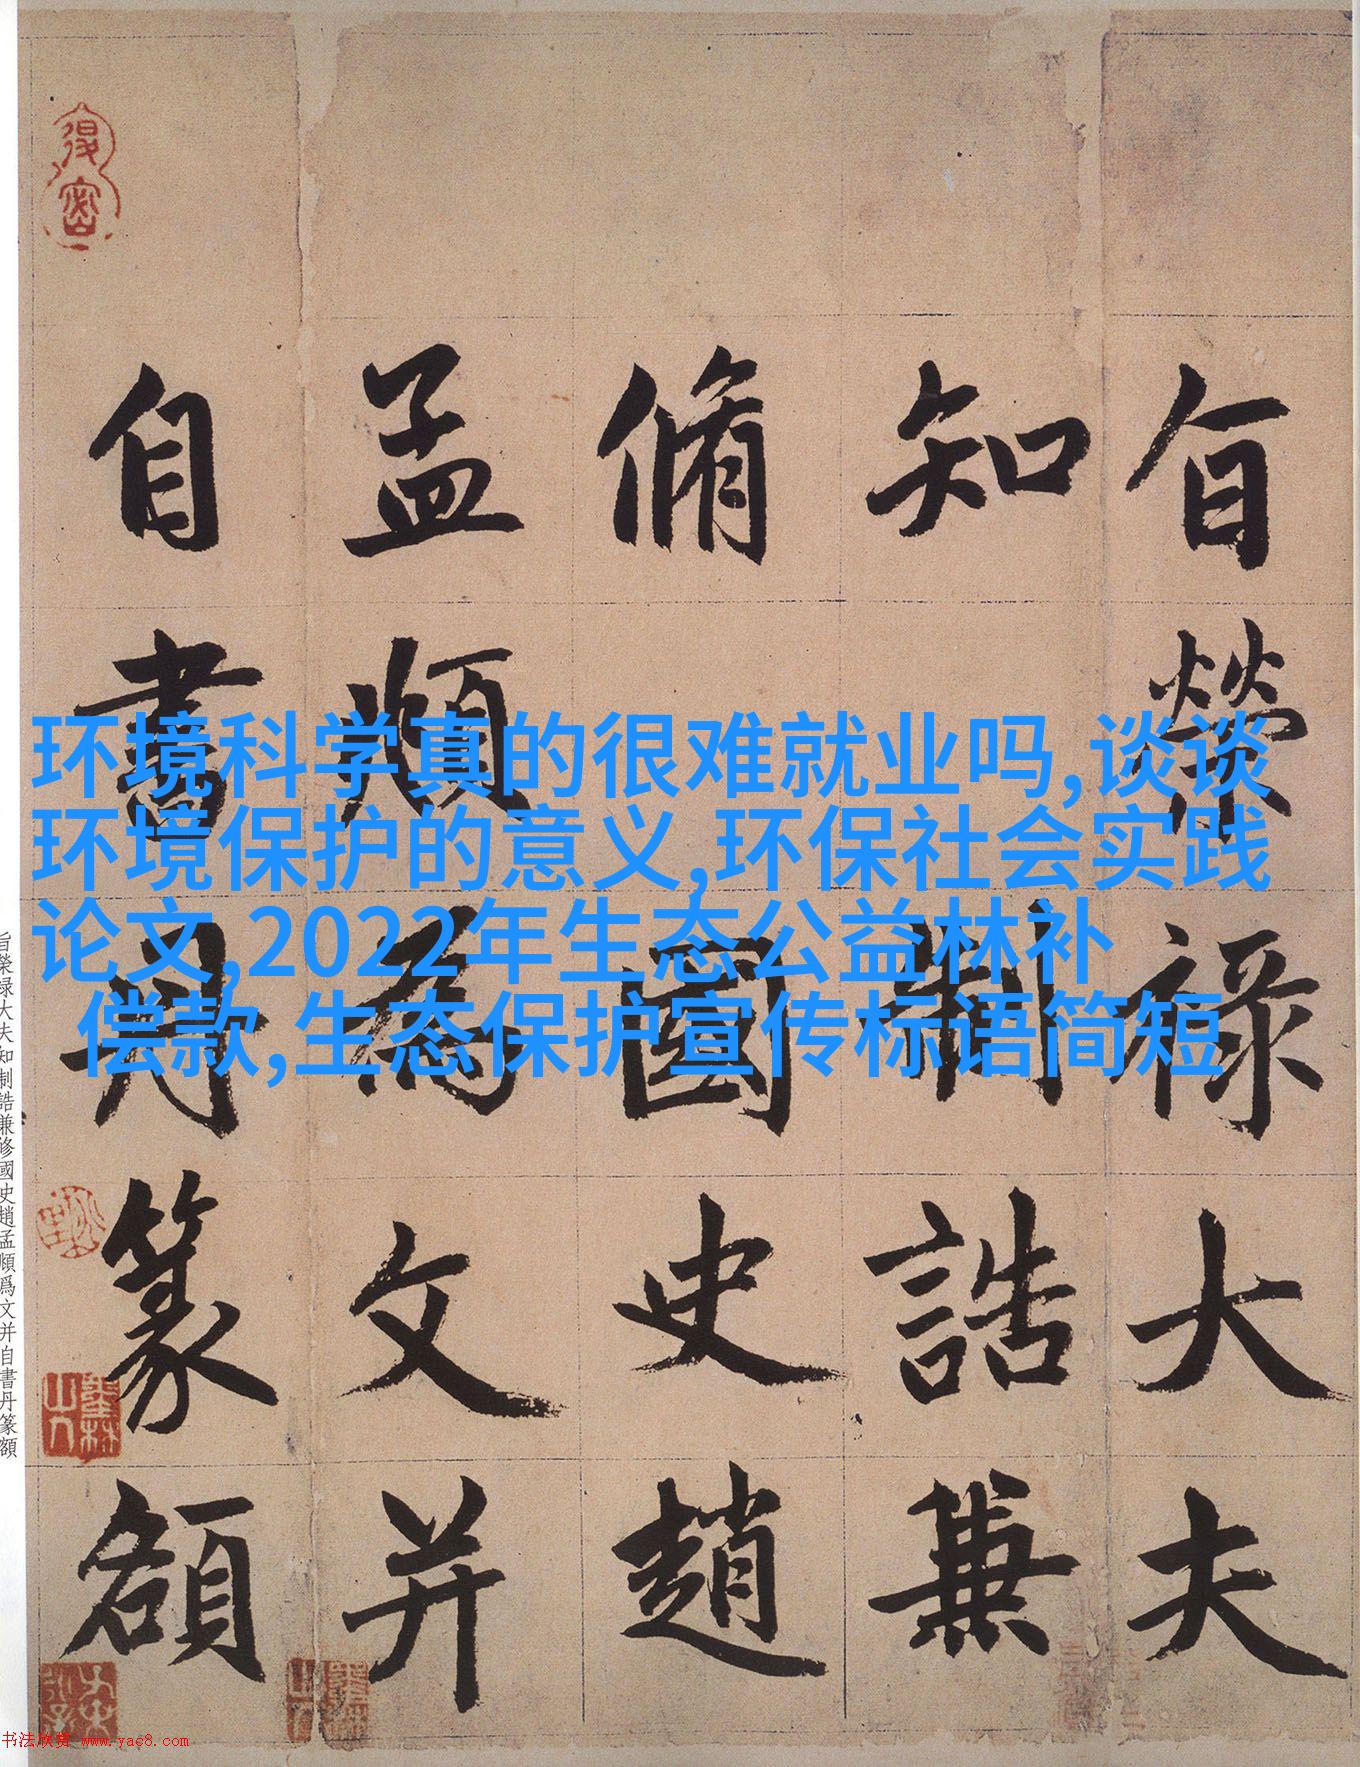 旨榮祿大夫
知制誥兼
脩國史趙
孟頫為文并
自書丹篆額
环境科学真的很难就业吗,谈谈
环境保护的意义,环保社会实践
论文,2022年生态公益林补
偿款,生态保护宣传标语简短
旨榮禄大夫知制誥兼修國史趙孟頫爲文并自書丹篆額
书法欣赏 www.yac8.com